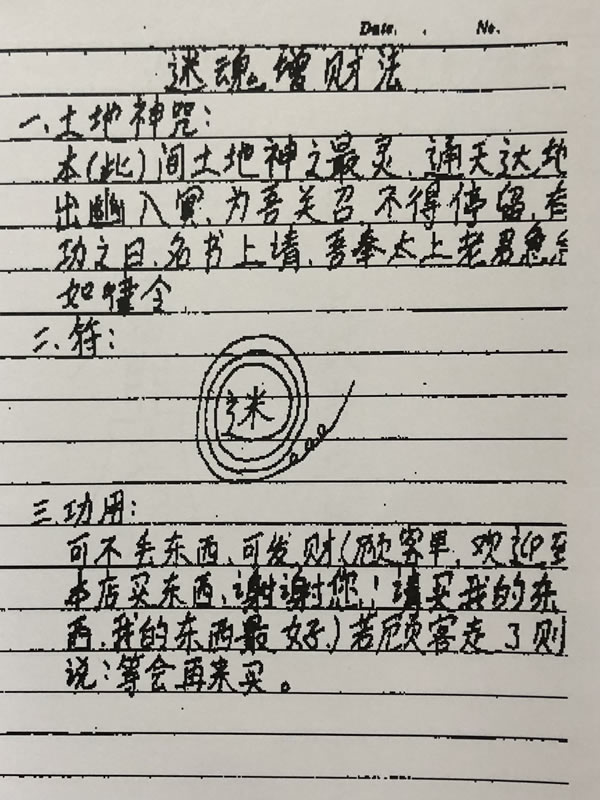 Date. No.
迷魂增财法
一、土地神咒:
本(此)间土地神之最灵、通天达地
出幽入冥、为吾关召、不得停留、有
功之日、名书上请、吾奉太上老君急急
如律令
二、符:
迷
三、功用:
可不丢东西、可发财(顾客单、欢迎至
本店买东西、谢谢您!请买我的东
西、我的东西最好)若顾客走了则
说:等会再来买。